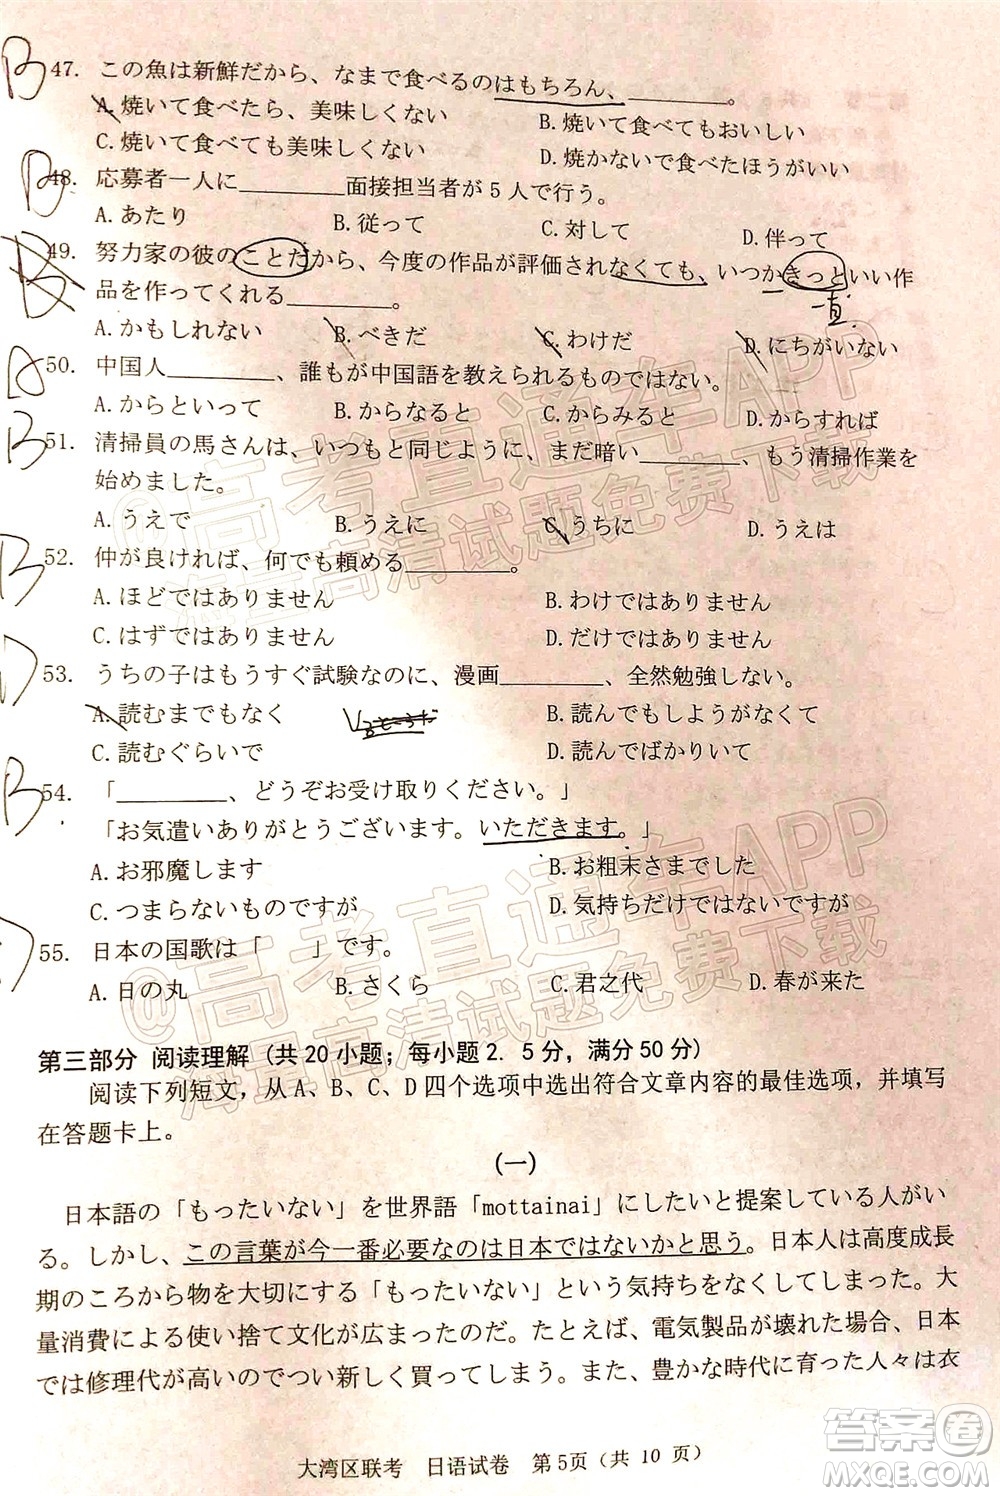 B 47. この魚は新鮮だから、なまで食べるのはもちろん、________。
A.焼いて食べたら、美味しくない B.焼いて食べてもおいしい
C.焼いて食べても美味しくない D.焼かないで食べたほうがいい
B 48. 応募者一人に________面接担当者が5人で行う。
A.あたり B.従って C.対して D.伴って
49. 努力家の彼のことだから、今度の作品が評価されなくても、いつかきっといい作
品を作ってくれる________。 一直
A.かもしれない B.べきだ C.わけだ D.にちがいない
A 50. 中国人________、誰もが中国語を教えられるものではない。
A.からといって B.からなると C.からみると D.からすれば
B 51. 清掃員の馬さんは、いつもと同じように、まだ暗い________、もう清掃作業を
始めました。
A.うえで B.うえに C.うちに D.うえは
B 52. 仲が良ければ、何でも頼める________。
A.ほどではありません B.わけではありません
C.はずではありません D.だけではありません
D 53. うちの子はもうすぐ試験なのに、漫画________、全然勉強しない。
A.読むまでもなく B.読んでもしようがなくて
C.読むぐらいで D.読んでばかりいて
B 54. 「________、どうぞお受け取りください。」
「お気遣いありがとうございます。いただきます。」
A.お邪魔します B.お粗末さまでした
C.つまらないものですが D.気持ちだけではないですが
55. 日本の国歌は「 」です。
A.日の丸 B.さくら C.君之代 D.春が来た
第三部分 阅读理解（共20小题；每小题2.5分，满分50分）
阅读下列短文，从A、B、C、D四个选项中选出符合文章内容的最佳选项，并填写
在答题卡上。
(一)
日本語の「もったいない」を世界語「mottainai」にしたいと提案している人がい
る。しかし、この言葉が今一番必要なのは日本ではないかと思う。日本人は高度成長
期のころから物を大切にする「もったいない」という気持ちをなくしてしまった。大
量消費による使い捨て文化が広まったのだ。たとえば、電気製品が壊れた場合、日本
では修理代が高いのでつい新しく買ってしまう。また、豊かな時代に育った人々は衣
大湾区联考 日语试卷 第5页（共 10 页）
@高考直通车APP
海量高清试题免费下载
@高考直通车APP
海量高清试题免费下载
答案卷
MXQE.COM